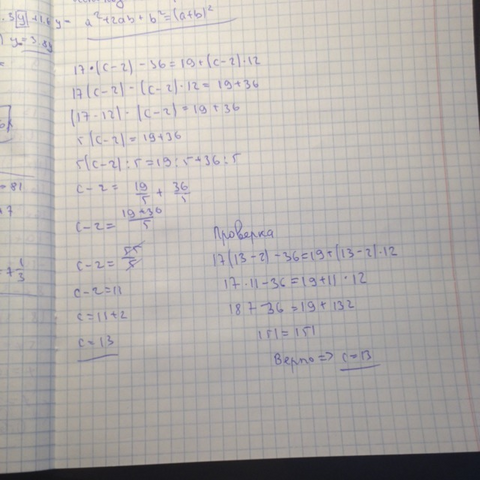 a² + 2ab + b² = (a+b)²
17·(c-2) - 36 = 19 + (c-2)·12
17(c-2) - (c-2)·12 = 19+36
(17-12)·(c-2) = 19+36
5(c-2) = 19+36
5(c-2):5 = 19:5+36:5
c-2 = 19/5 + 36/5
c-2 = 19+36/5
c-2 = 55/5
c-2=11
c=11+2
c=13
Проверка
17(13-2)-36=19+(13-2)·12
17·11-36=19+11·12
187-36=19+132
151=151
Верно => c=13
=81